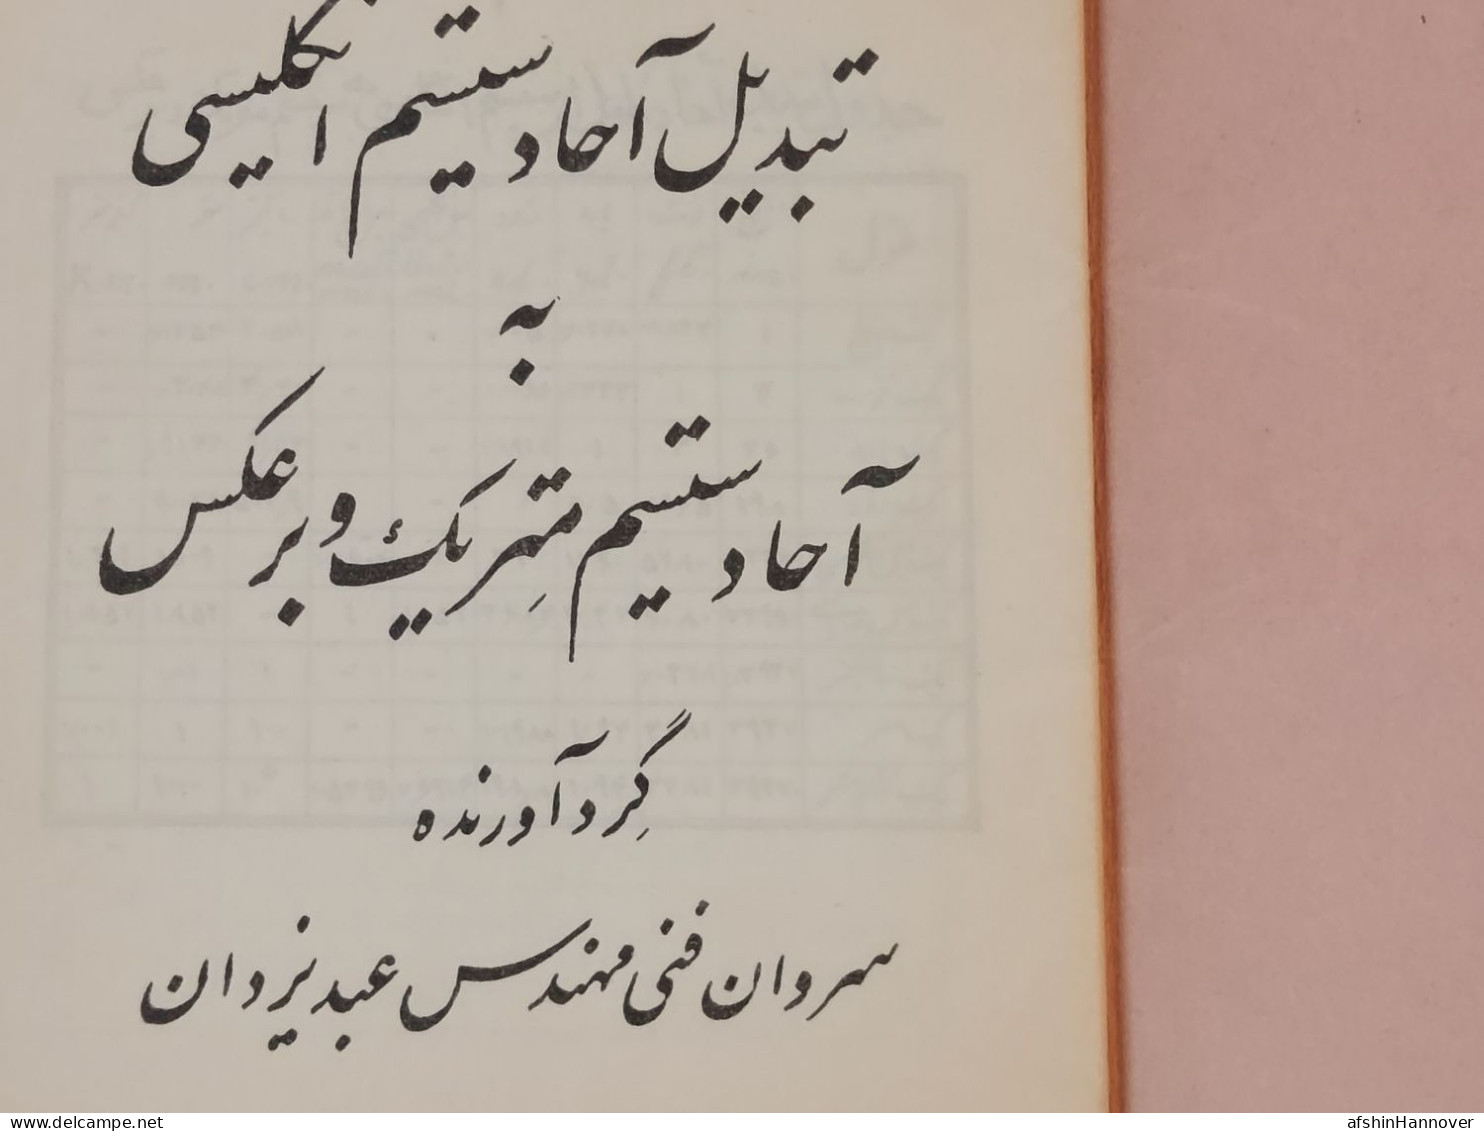 تبدیل آحاد سیستم انگلیسی
به
آحاد سیستم متریک و برعکس
گردآورنده
سروان فنی مهندس عبد یزدان
www.delcampe.net
afshinHannover